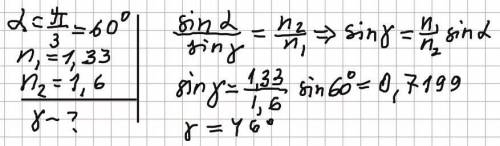 α = π/3 = 60°
n₁ = 1,33
n₂ = 1,6
γ – ?
sin α / sin γ = n₂ / n₁ ⇒ sin γ = n₁/n₂ sin α
sin γ = 1,33/1,6 sin 60° = 0,7199
γ = 46°